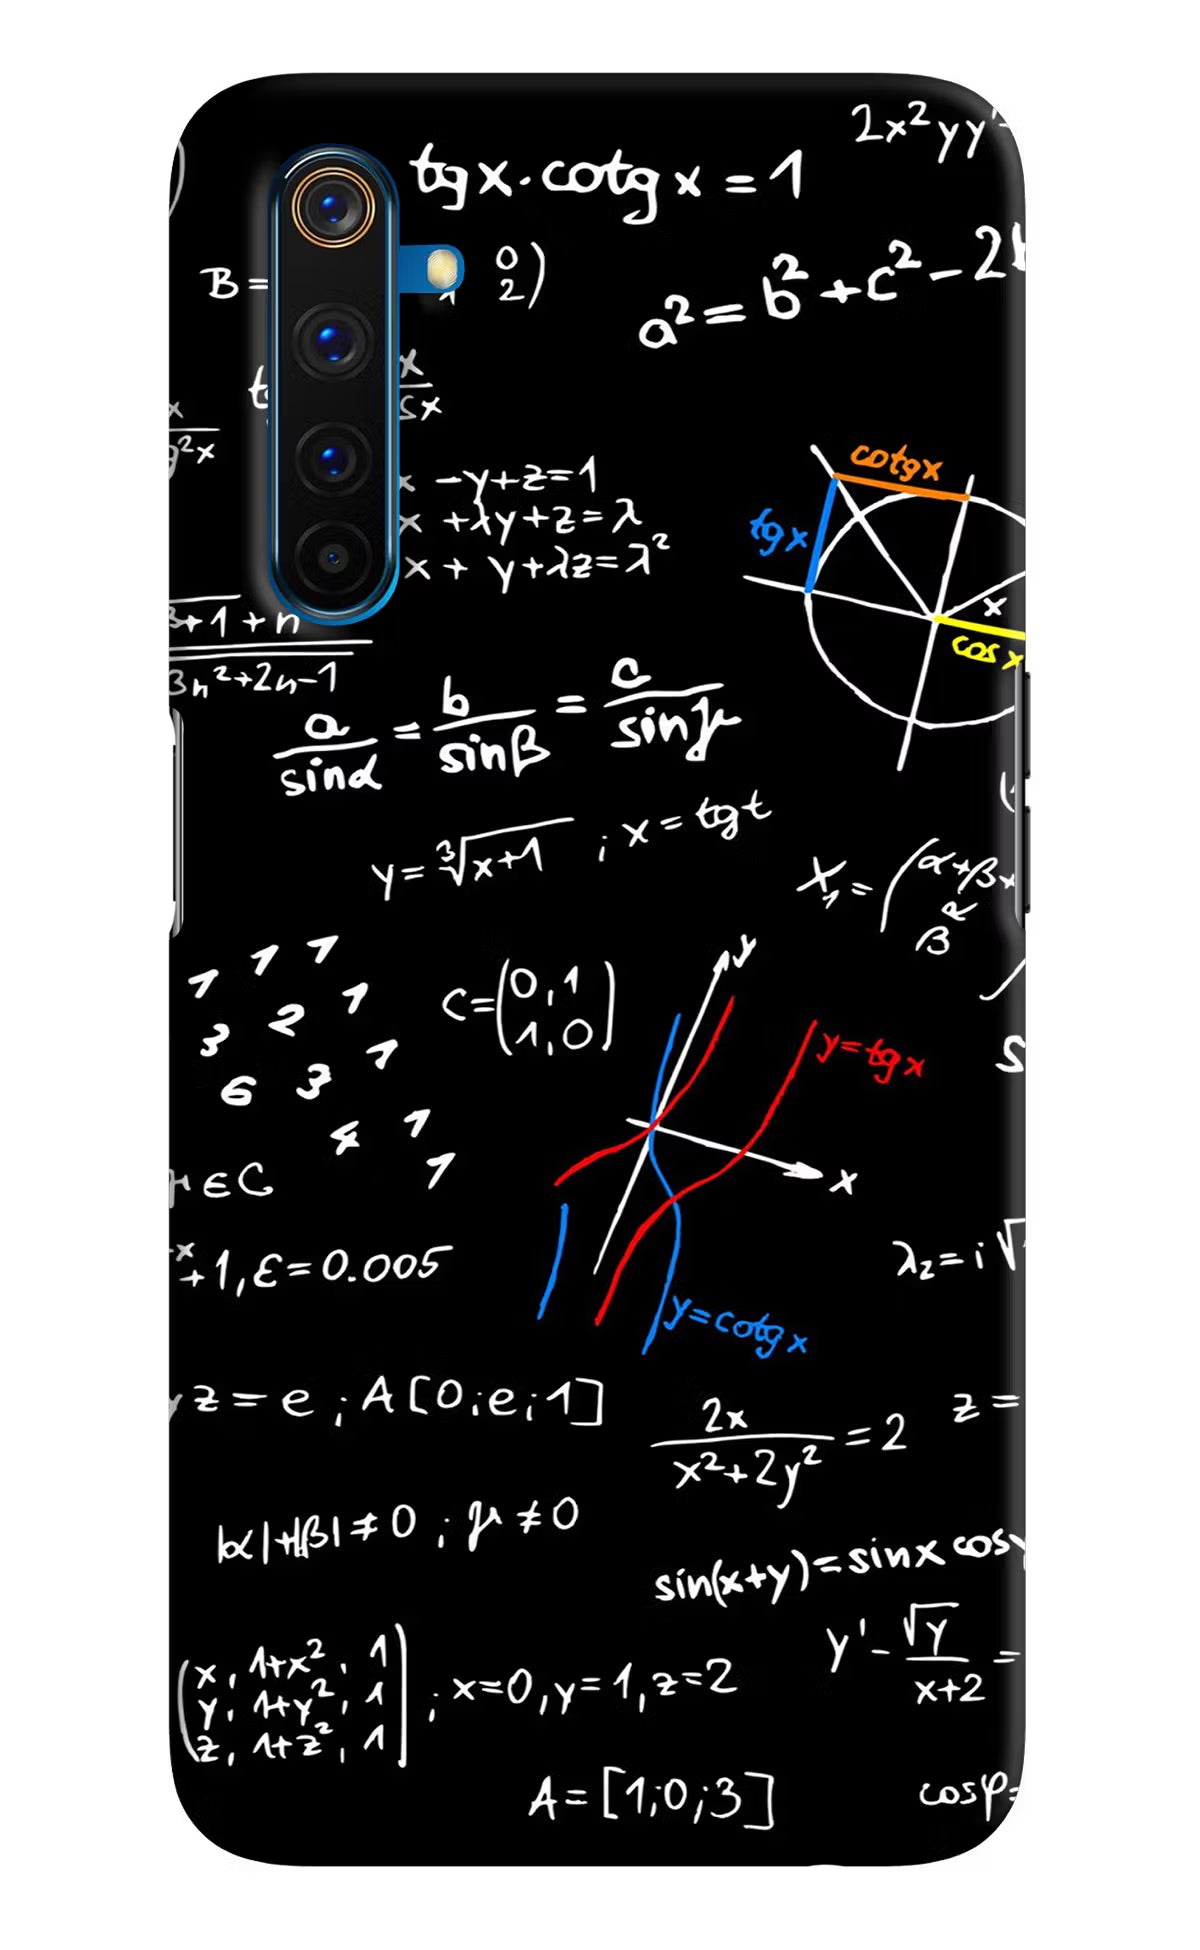 2x²yy'
tgx·cotgx=1
B=
0
2)
a²=b²+c²-2
x
x
g²x
x -y+z=1
x +λy+z=λ
x + y+λz=λ²
cotgx
tgx
x
cosx
3+1+n
3n²+2n-1
a/sinα = b/sinβ = c/sinγ
y=∛x+1 ; x=tgt
X₁=(α+β+
β
1 1 1
3 2 1
6 3 1
4 1
1
C=(0,1
1,0)
y
y=tgx
x
y=cotgx
∈C
+1,ε=0.005
λ₂=i√
z=e ; A[0;e;1]
2x/x²+2y²=2
z=
|α|+|β|≠0 ; μ≠0
sin(x+y)=sinx cosy
y'-√y/x+2=
(x, 1+x², 1
y, 1+y², 1
z, 1+z², 1) ; x=0,y=1,z=2
A=[1;0;3]
cosφ=